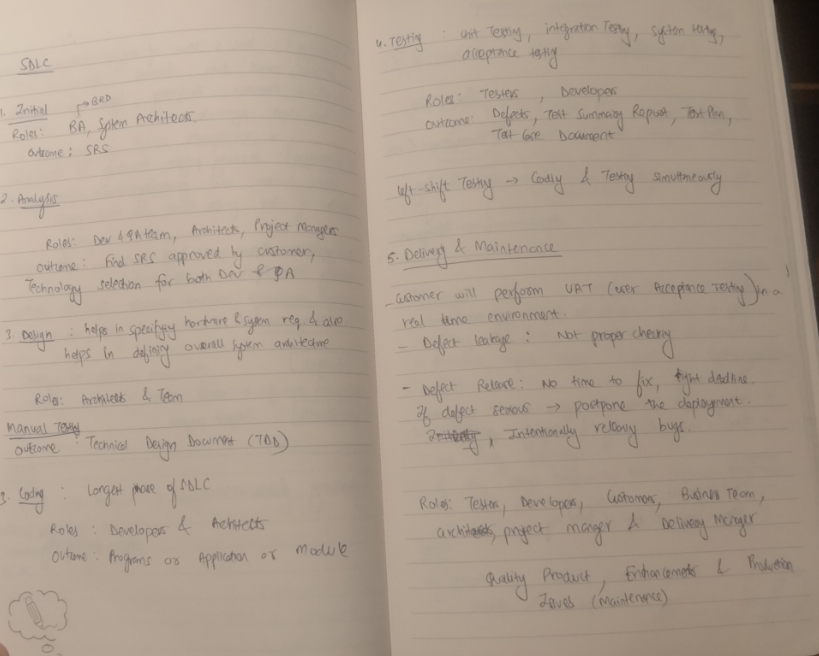 SDLC
1. Initial
BRD
Roles: BA, System Architects
outcome: SRS
2. Analysis
Roles: Dev & QA team, Architects, Project Mangers
outcome: Find SRS approved by customer,
Technology selection for both Dev & QA
3. Design : helps in specifying hardware & system req. & also
helps in defining overall system architecture
Roles: Architects & Team
Manual Testing
outcome : Technical Design Document (TDD)
3. Coding : Longest phase of SDLC
Roles : Developers & Architects
Outcome : Programs or Application or Module
4. Testing : Unit Testing, integration Testing, System testing,
acceptance testing
Roles: Testers, Developers
outcome: Defects, Test Summary Report, Test Plan,
Test Case Document
left-shift Testing → Coding & Testing simultaneously
5. Delivery & Maintenance
- Customer will perform UAT (User Acceptance Testing) in a
real time environment.
- Defect leakage : Not proper checking
- Defect Release: No time to fix, tight deadline.
if defect serious → postpone the deployment.
, Intentionally relesing bugs.
Roles: Tester, Developers, Customers, Business Team,
architects, project manger & Delivery Manger
Quality Product, Enhancements & Production
Issues (Maintenance)